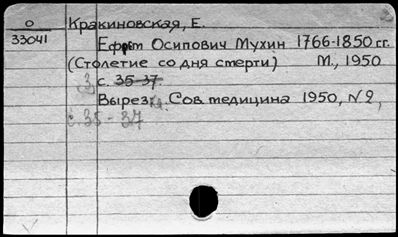 О Кракиновская, Е.
33041
Ефрем Осипович Мухин 1766-1850 гг.
(Столетие со дня смерти) М., 1950
3 с. 35-37.
Вырез. Сов. медицина 1950, № 2,
с. 35 - 37